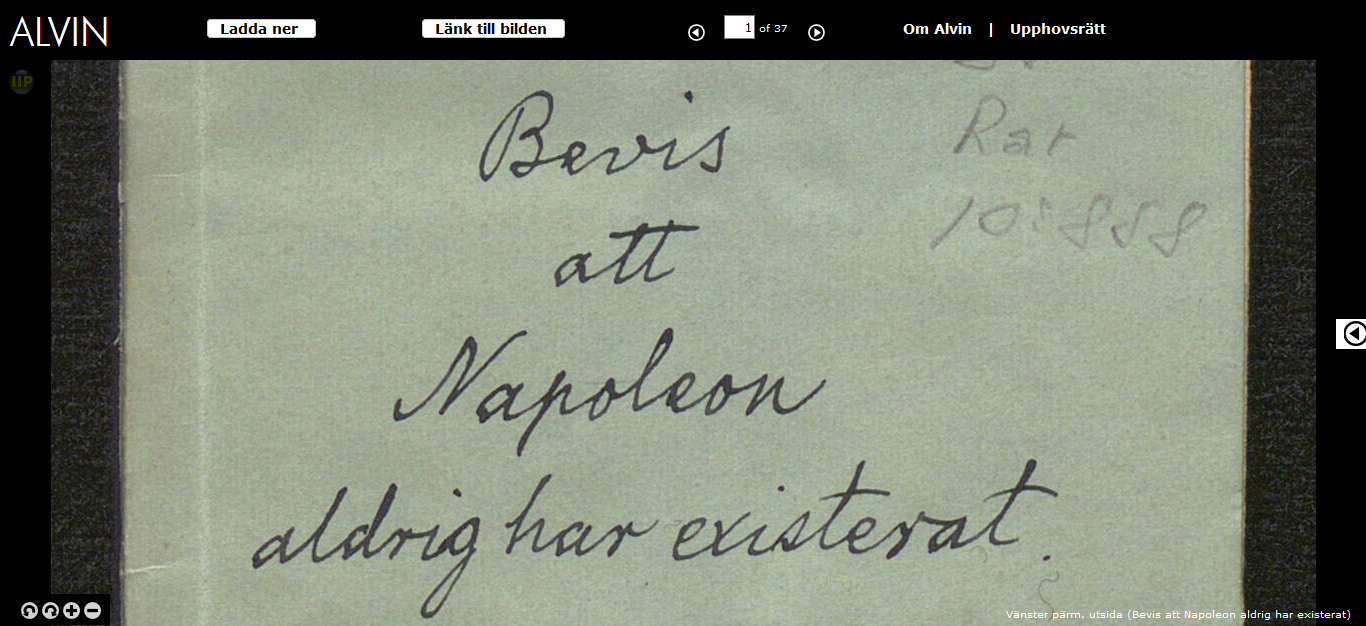 ALVIN
Ladda ner
Länk till bilden
1 of 37
Om Alvin | Upphovsrätt
IIP
Rar
10:858
Bevis
att
Napoleon
aldrig har existerat.
Vänster pärm, utsida (Bevis att Napoleon aldrig har existerat)